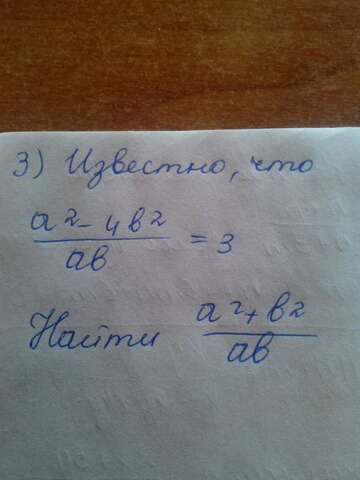 3) Известно, что
a²-4b²/ab = 3
Найти a²+b²/ab